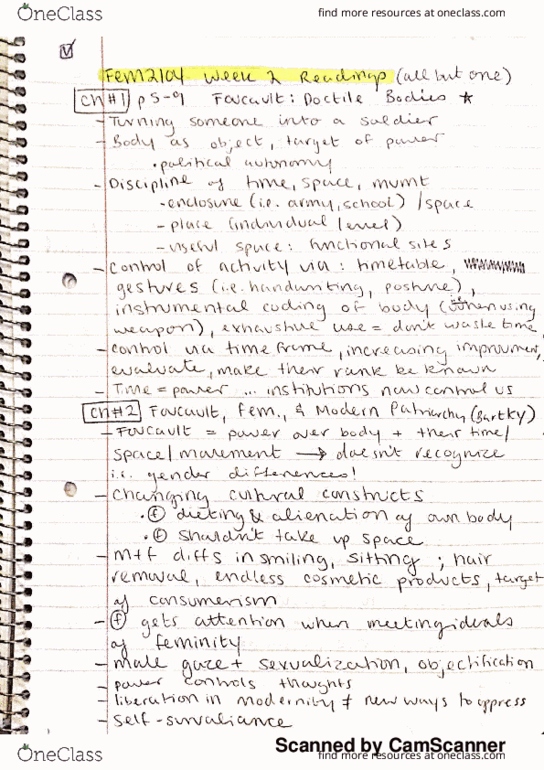 OneClass
find more resources at oneclass.com
Fem2104 Week 2 Readings (all but one)
Ch#1 p5-9 Foucault: Doctile Bodies ★
- Turning someone into a soldier
- Body as object, target of power
• political autonomy
- Discipline of time, space, mvmt
- enclosure (i.e. army, school) /space
- place (individual level)
- useful space: functional sites
- control of activity via: timetable,
gestures (i.e. handwriting, posture),
instrumental coding of body (when using
weapon), exhaustive use = don't waste time
- control via time frame, increasing improvment,
evaluate, make their rank be known
- Time = power ... institutions now control us
Ch#2 Foucault, Fem., & Modern Patriarchy (Bartky)
- Foucault = power over body + their time/
space/movement → doesn't recognize
i.e. gender differences!
- Changing cultural constructs
• (f) dieting & alienation of own body
• (f) shouldn't take up space
- m+f diffs in smiling, sitting; hair
removal, endless cosmetic products, target
of consumerism
- (f) gets attention when meeting ideals
of feminity
- male gaze + sexualization, objectification
- power controls thoughts
- liberation in modernity ≠ new ways to oppress
- self-survaliance
Scanned by CamScanner
OneClass
find more resources at oneclass.com